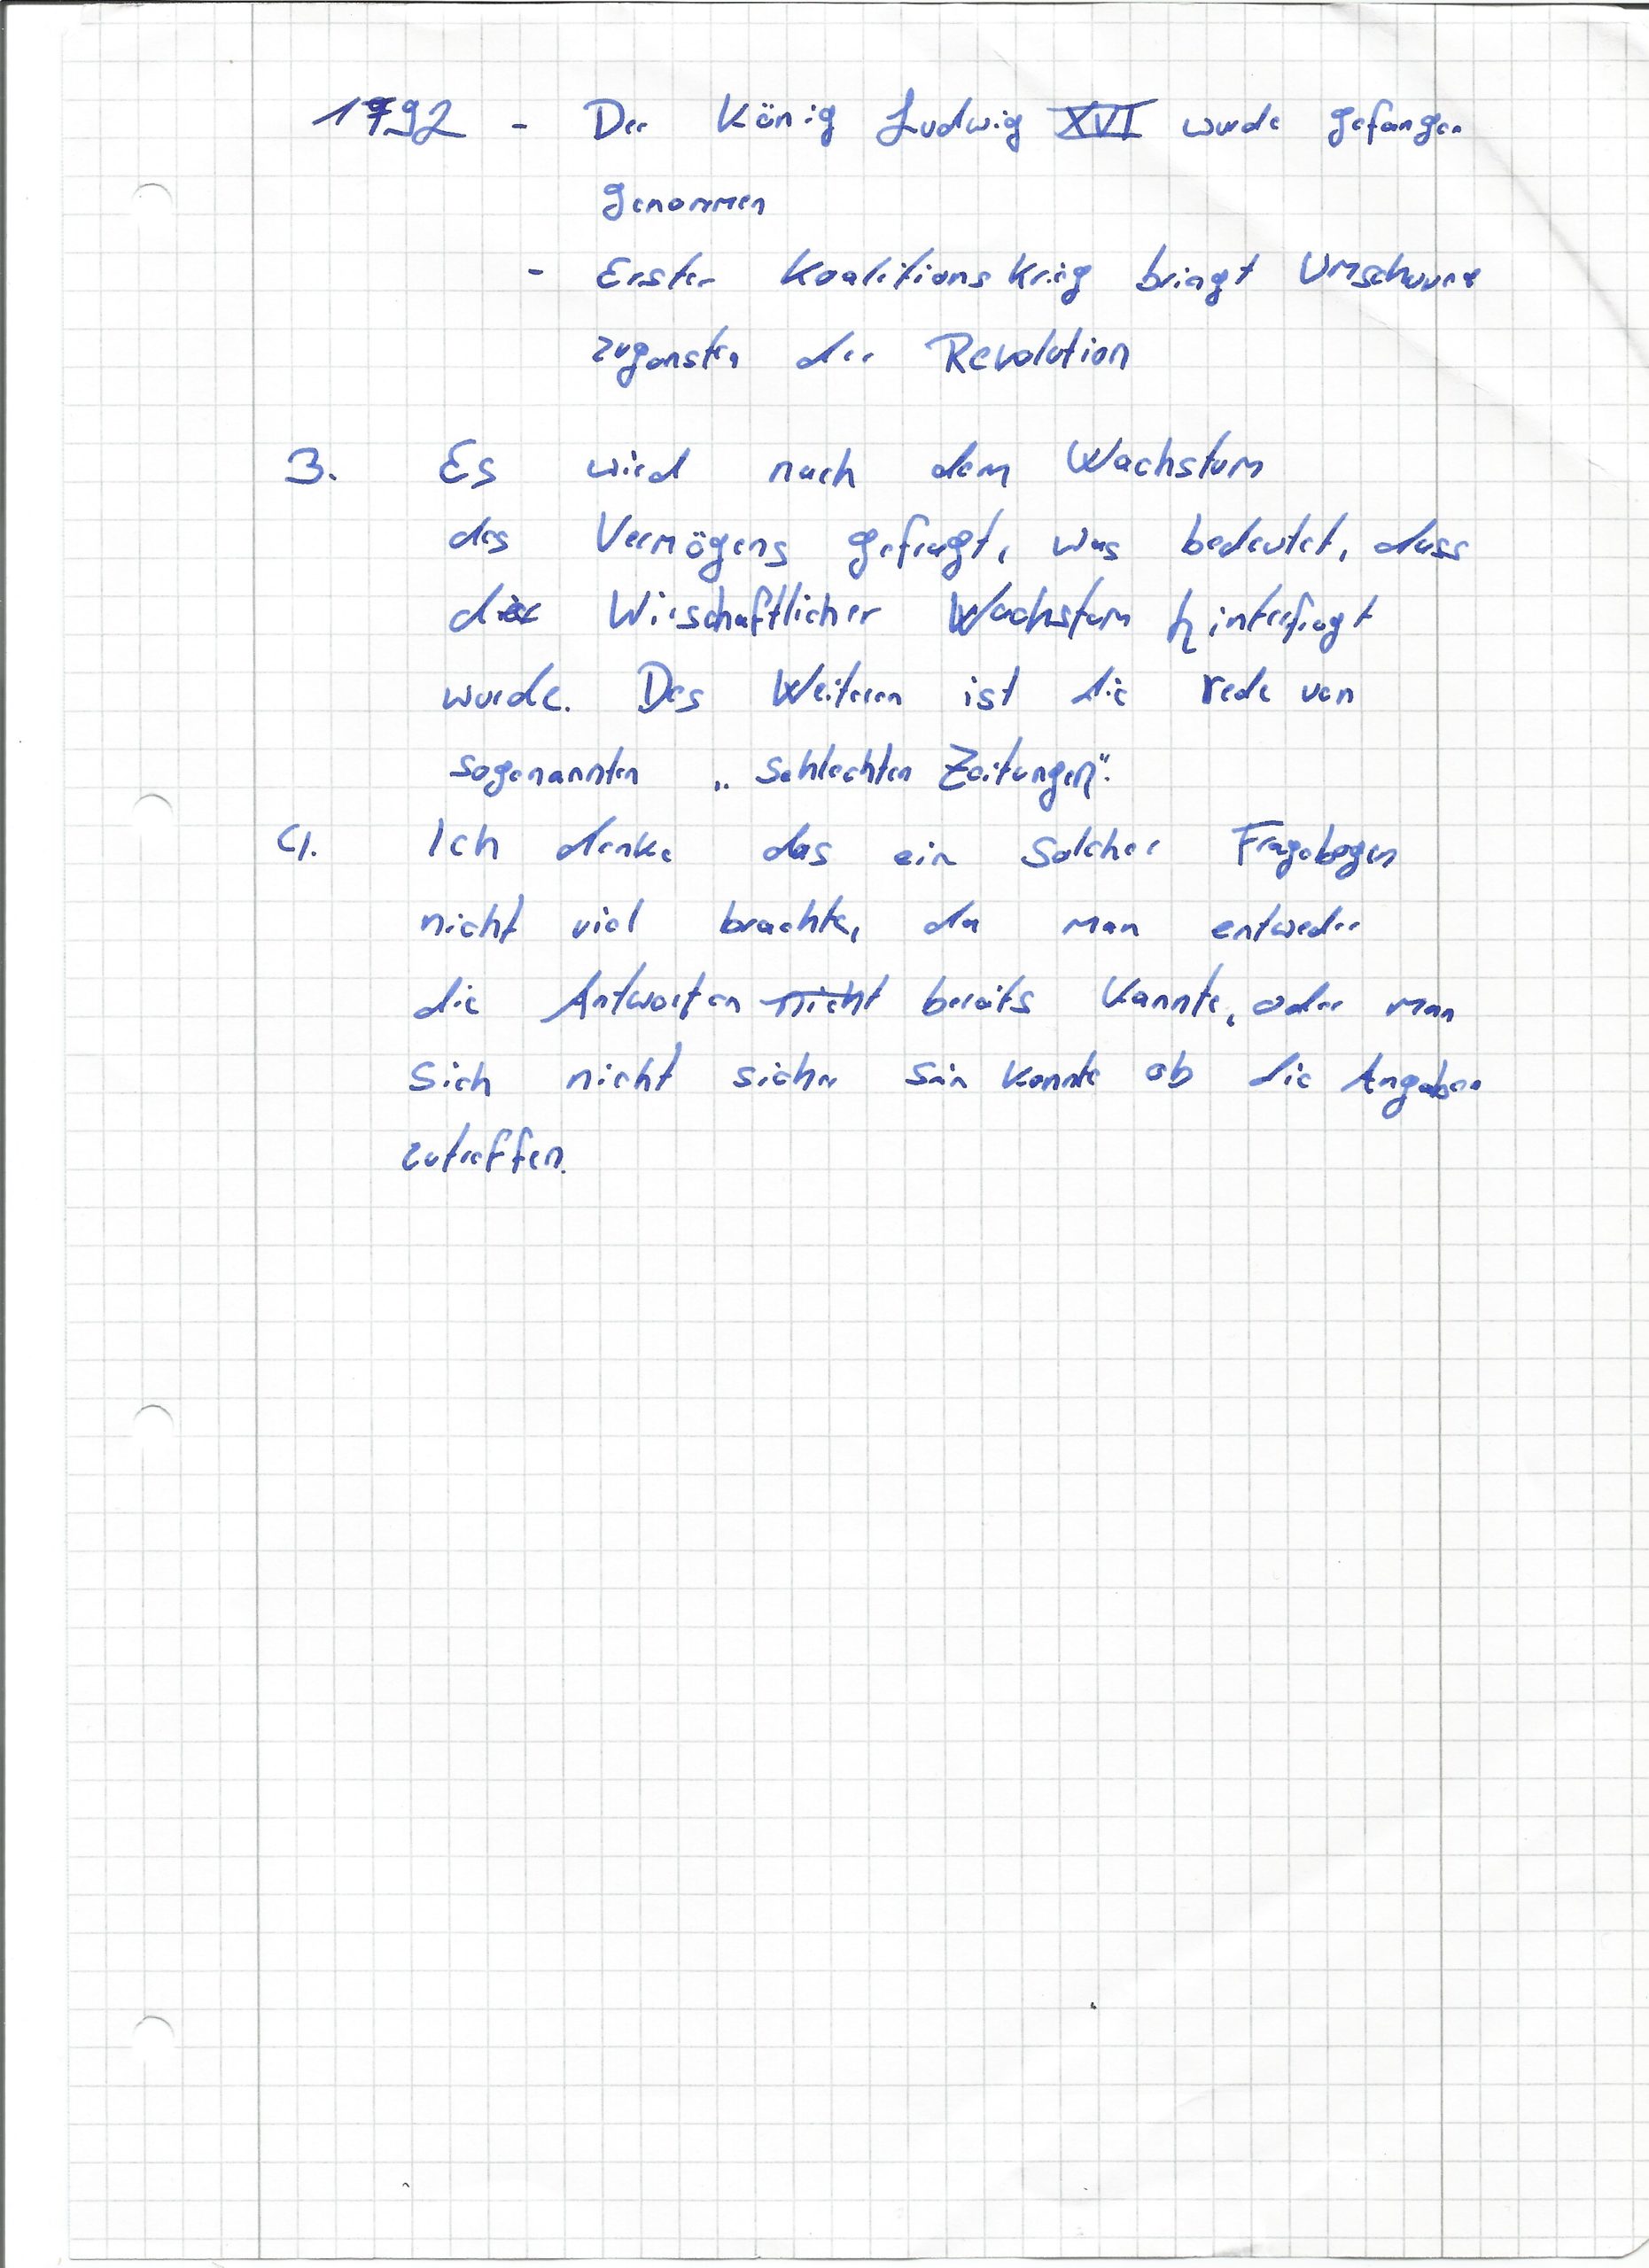 1792 - Der König Ludwig XVI wurde gefangen
genommen
- Erster Koalitionskrieg bringt Umschwung
zugunsten der Revolution
3. Es wird nach dem Wachstum
des Vermögens gefragt, was bedeutet, dass
die Wirschaftlicher Wachstum hinterfragt
wurde. Des Weiteren ist die rede von
sogenannten „schlechten Zeitungen“.
4. Ich denke das ein solcher Fragebogen
nicht viel brachte, da man entweder
die Antworten nicht bereits kannte, oder man
sich nicht sicher sein konnte ob die Angaben
zutreffen.